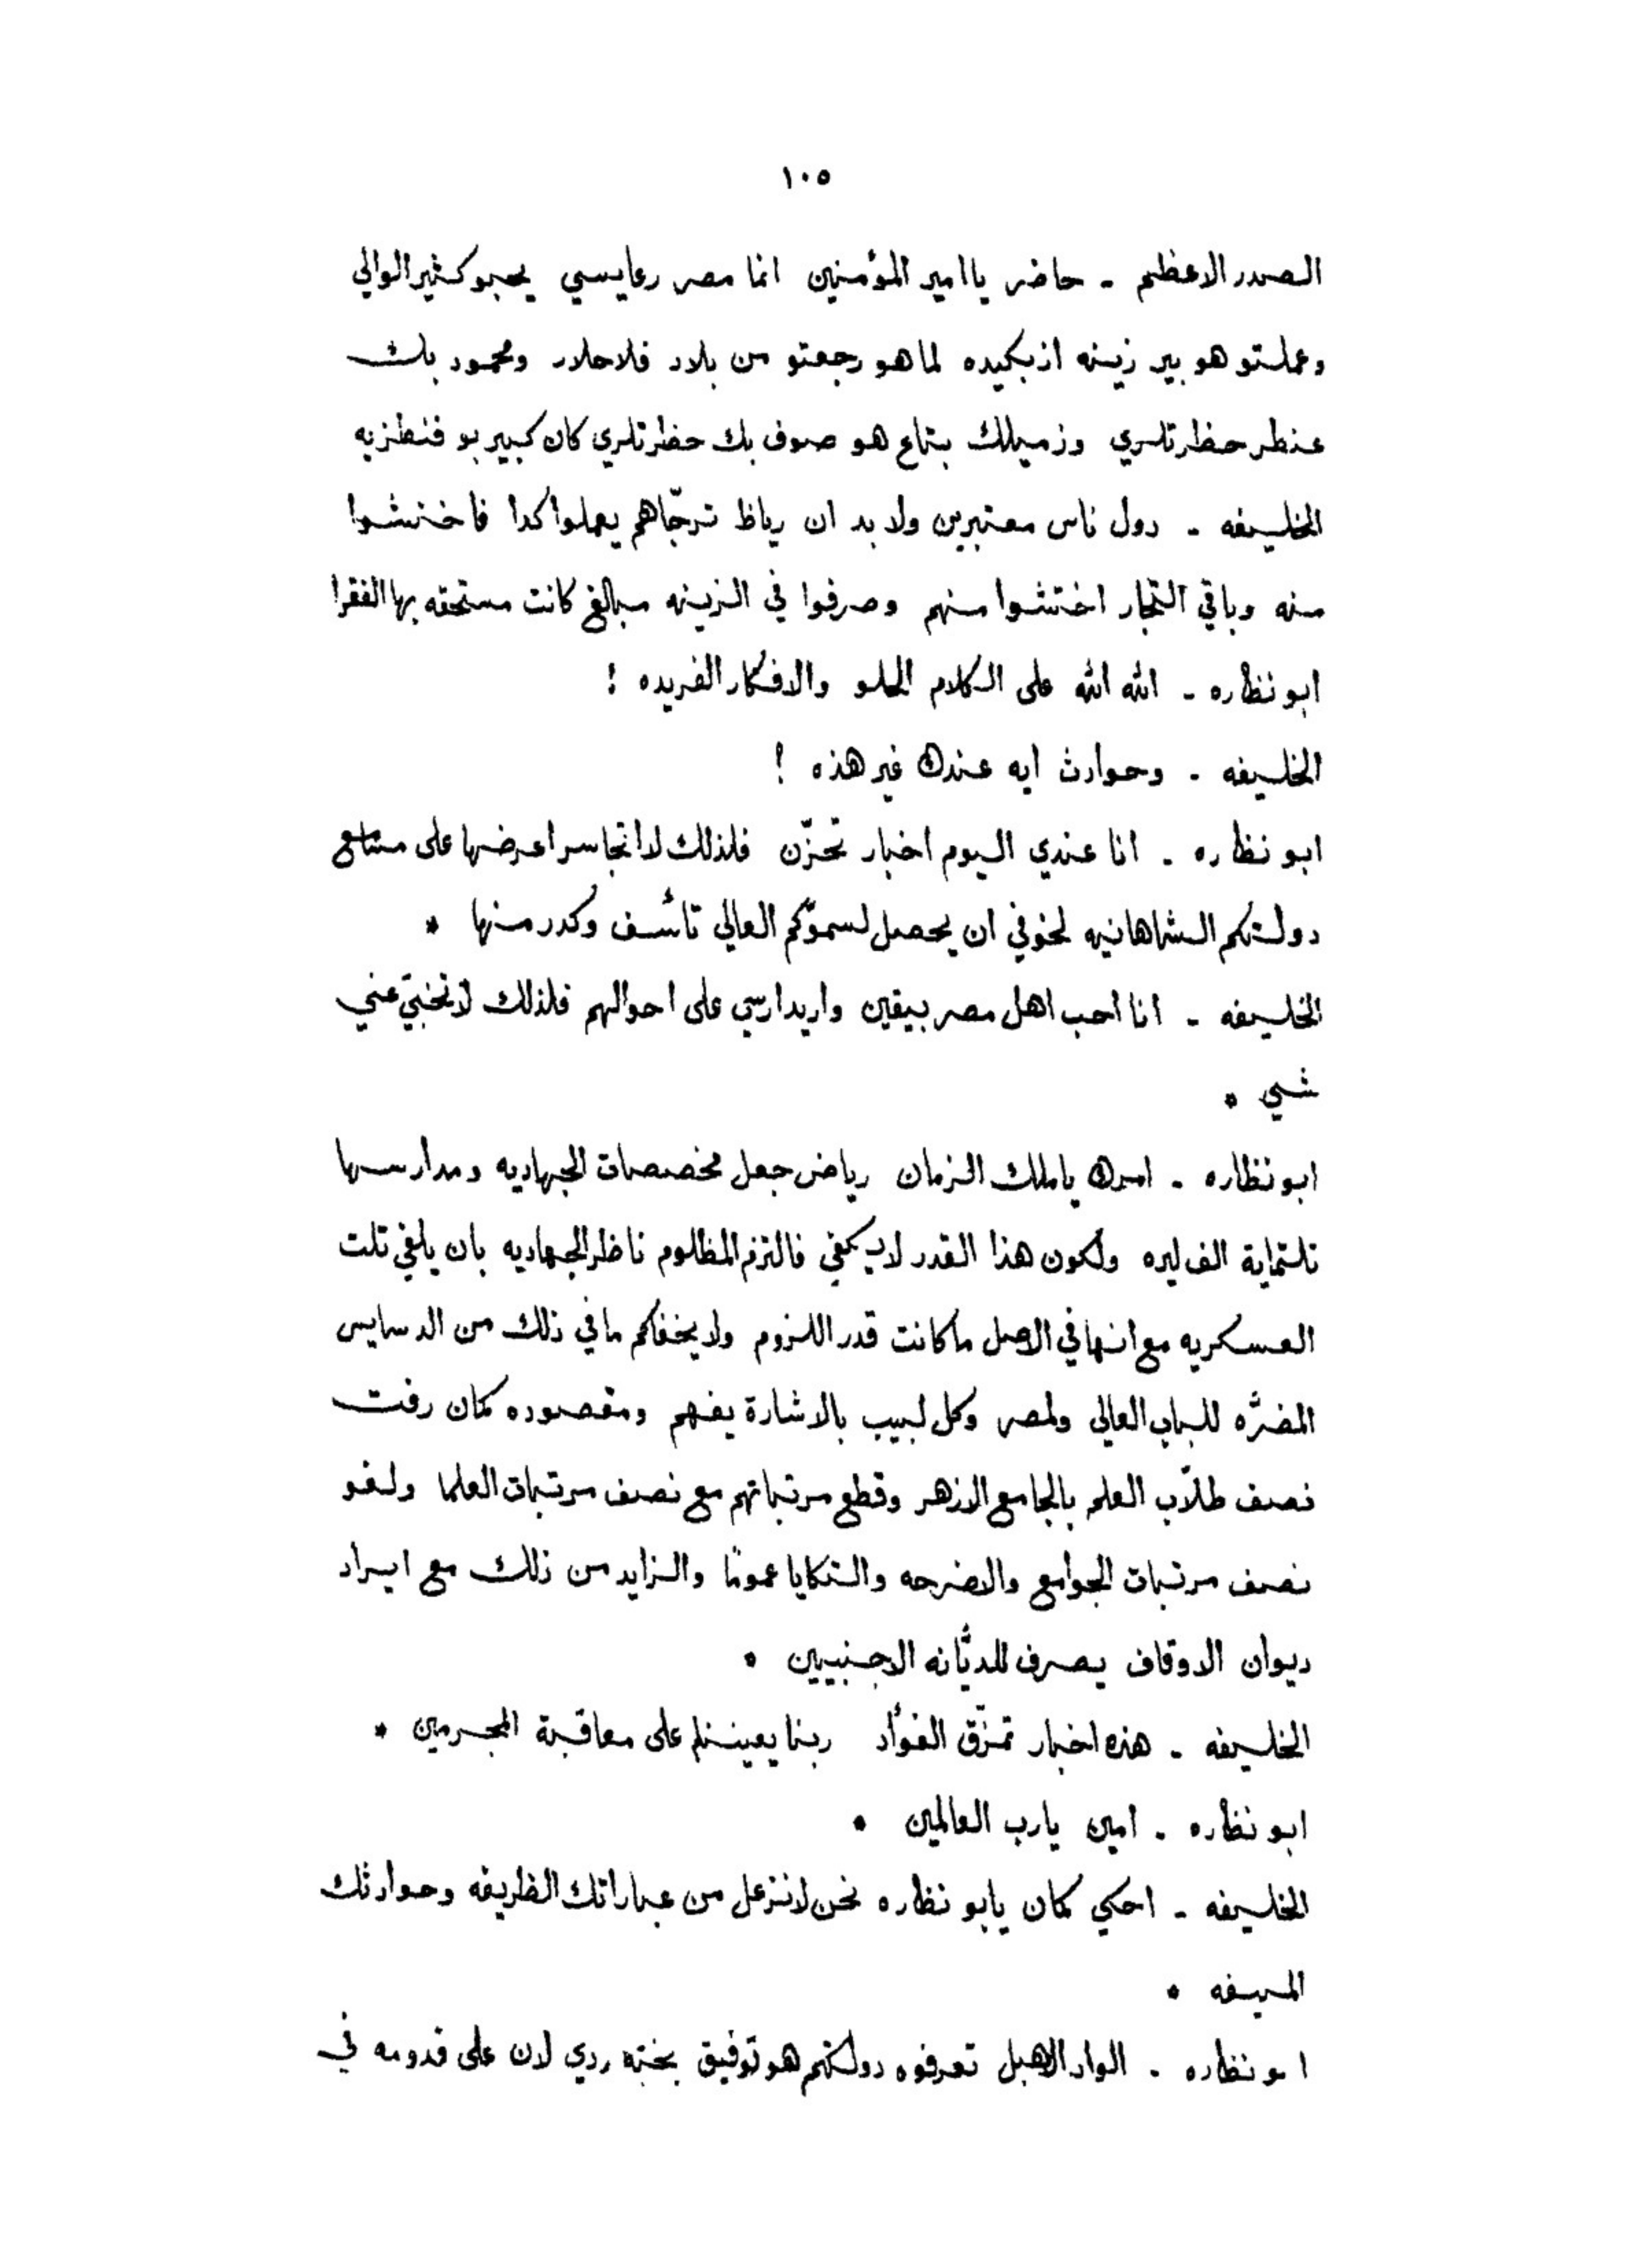 ١٠٥
الصدر الاعظم - حاضر يا امير المؤمنين انما مصر رعايسي يحبو كثير الوالي
وعملتو هو بير زينه ازبكيده لما هو رجعتو من بلاد فلاحلار ومحمود بك
عنطر حظرتلري وزميلك بتاع هو صوف بك حظرتلري كان كبير بو فنطزيه
الخليفه - دول ناس معتبرين ولا بد ان رياظ ترجّاهم يعملوا كدا فاختشوا
منه وباقي التجار اختشوا منهم وصرفوا في الزينه مبالغ كانت مستحقه بها الفقرا
ابو نظاره - الله الله على الكلام الحلو والافكار الفريده !
الخليفه - وحوادث ايه عندك غير هذه !
ابو نظاره - انا عندي اليوم اخبار تحزّن فلذلك لا اتجاسر اعرضها على مسامع
دولتكم الشاهانيه لخوفي ان يحصل لسموّكم العالي تأسف وكدر منها *
الخليفه - انا احب اهل مصر بيقين واريد ارسي على احوالهم فلذلك لا تخبّي عني
شي *
ابو نظاره - امرك يا ملك الزمان رياض جعل مخصصات الجهاديه ومدارسها
تلتماية الف ليره ولكون هذا القدر لا يكفي فالتزم المظلوم ناظر الجهاديه بان يلغي تلت
العسكريه مع انها في الاصل ما كانت قدر اللزوم ولا يخفاكم ما في ذلك من الدسايس
المضرّه للباب العالي ولمصر وكل لبيب بالاشارة يفهم ومقصوده كمان رفت
نصف طلاّب العلم بالجامع الازهر وقطع مرتباتهم مع نصف مرتبات العلما ولغو
نصف مرتبات الجوامع والاضرحه والتكايا عموما والزايد من ذلك مع ايراد
ديوان الاوقاف يصرف للديّانه الاجنبيين *
الخليفه - هذه اخبار تمزّق الفؤاد ربنا يعيننا على معاقبة المجرمين *
ابو نظاره - امين يا رب العالمين *
الخليفه - احكي كمان يابو نظاره نحن لا نزعل من عباراتك الظريفه وحوادثك

ابو نظاره - الواد الاهبل تعرفوه دولتكم هو توفيق بخته ردي لان على قدومه في